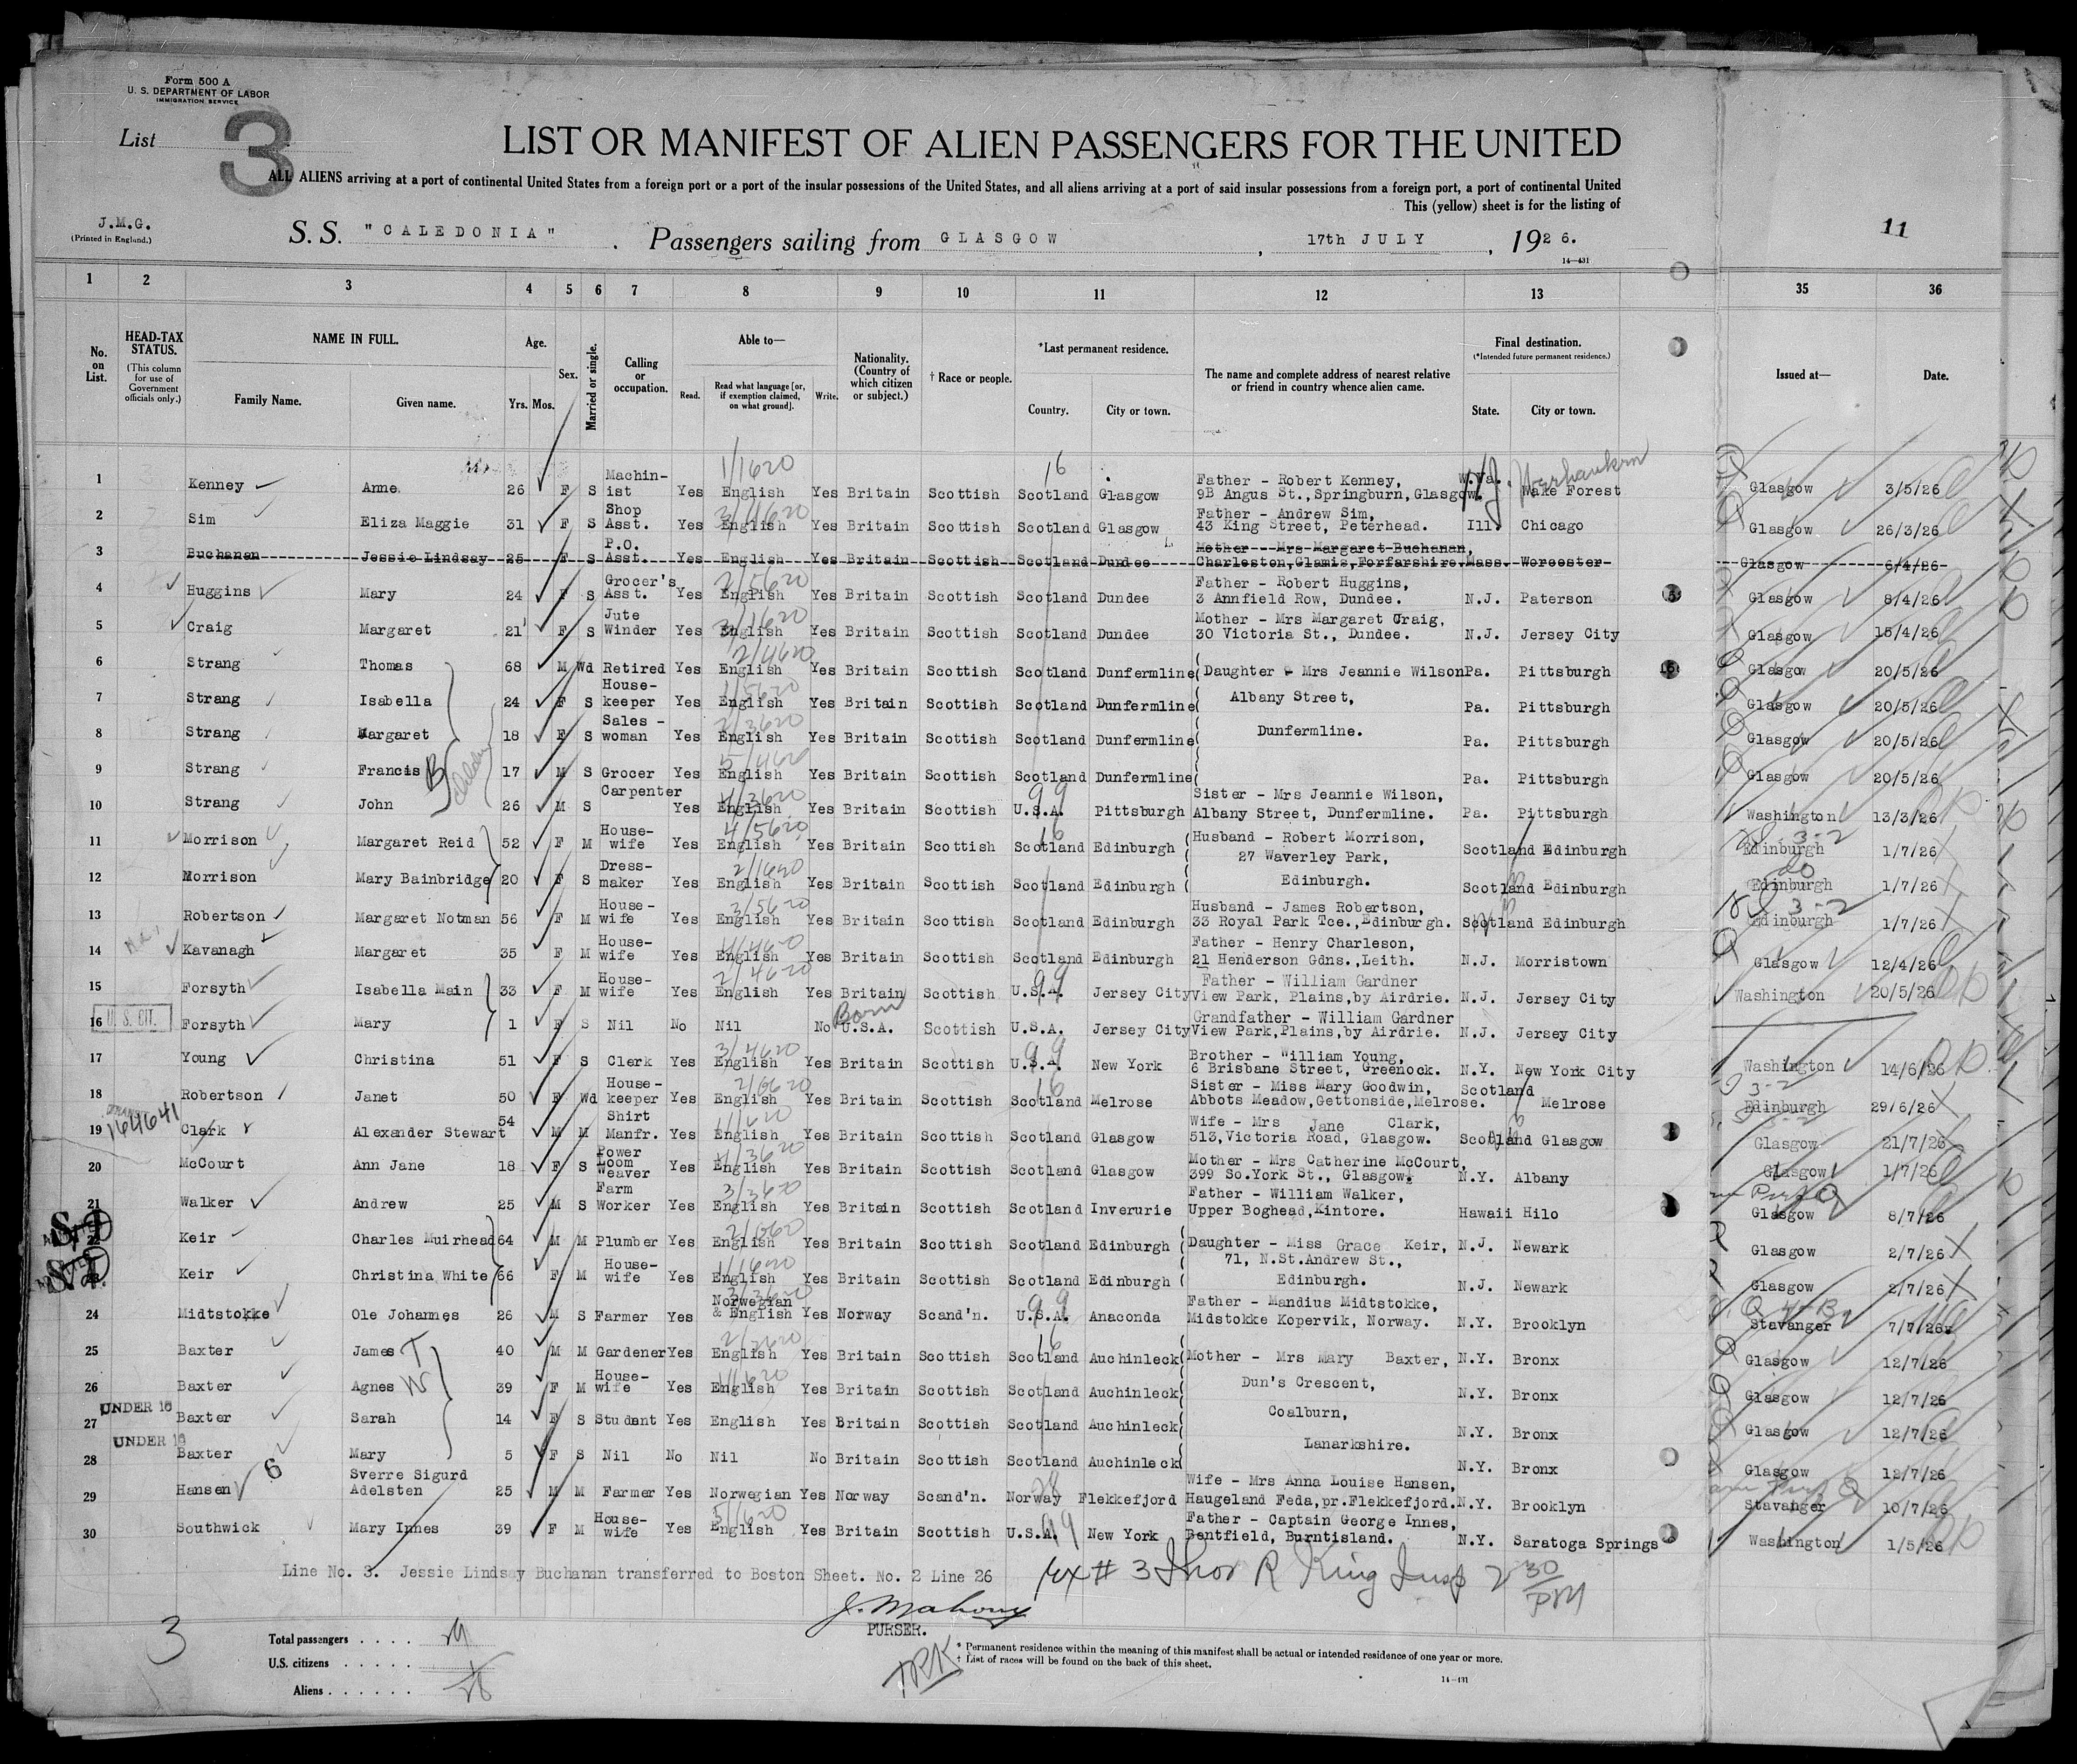 Form 500 A
U. S. DEPARTMENT OF LABOR
IMMIGRATION SERVICE
List 3
LIST OR MANIFEST OF ALIEN PASSENGERS FOR THE UNITED
ALL ALIENS arriving at a port of continental United States from a foreign port or a port of the insular possessions of the United States, and all aliens arriving at a port of said insular possessions from a foreign port, a port of continental United
This (yellow) sheet is for the listing of
J.M.G.
(Printed in England.)
S. S. "CALEDONIA" . Passengers sailing from GLASGOW , 17th JULY , 1926.
14—431
11
1 2 3 4 5 6 7 8 9 10 11 12 13 35 36
No. on List.
HEAD-TAX STATUS.
(This column for use of Government officials only.)
NAME IN FULL.
Family Name. Given name.
Age.
Yrs. Mos.
Sex.
Married or single.
Calling or occupation.
Able to—
Read. Read what language [or, if exemption claimed, on what ground]. Write.
Nationality. (Country of which citizen or subject.)
† Race or people.
*Last permanent residence.
Country. City or town.
The name and complete address of nearest relative or friend in country whence alien came.
Final destination.
(*Intended future permanent residence.)
State. City or town.
Issued at— Date.
1 Kenney Anne 26 F S Machinist Yes English Yes Britain Scottish Scotland Glasgow Father - Robert Kenney, 9B Angus St.,Springburn,Glasgow. W.Va. Wake Forest Glasgow 3/5/26
2 Sim Eliza Maggie 31 F S Shop Asst. Yes English Yes Britain Scottish Scotland Glasgow Father - Andrew Sim, 43 King Street, Peterhead. Ill. Chicago Glasgow 26/3/26
3 Buchanan Jessie Lindsay 25 F S P.O. Asst. Yes English Yes Britain Scottish Scotland Dundee Mother - Mrs Margaret Buchanan, Charleston,Glamis,Forfarshire. Mass. Worcester Glasgow 6/4/26
4 Huggins Mary 24 F S Grocer's Asst. Yes English Yes Britain Scottish Scotland Dundee Father - Robert Huggins, 3 Annfield Row, Dundee. N.J. Paterson Glasgow 8/4/26
5 Craig Margaret 21 F S Jute Winder Yes English Yes Britain Scottish Scotland Dundee Mother - Mrs Margaret Craig, 30 Victoria St., Dundee. N.J. Jersey City Glasgow 15/4/26
6 Strang Thomas 68 M Wd Retired Yes English Yes Britain Scottish Scotland Dunfermline Daughter - Mrs Jeannie Wilson Pa. Pittsburgh Glasgow 20/5/26
7 Strang Isabella 24 F S House-keeper Yes English Yes Britain Scottish Scotland Dunfermline Albany Street, Pa. Pittsburgh Glasgow 20/5/26
8 Strang Margaret 18 F S Sales-woman Yes English Yes Britain Scottish Scotland Dunfermline Dunfermline. Pa. Pittsburgh Glasgow 20/5/26
9 Strang Francis B 17 M S Grocer Yes English Yes Britain Scottish Scotland Dunfermline Pa. Pittsburgh Glasgow 20/5/26
10 Strang John 26 M S Carpenter Yes English Yes Britain Scottish U.S.A. Pittsburgh Sister - Mrs Jeannie Wilson, Albany Street, Dunfermline. Pa. Pittsburgh Washington 13/3/26
11 Morrison Margaret Reid 52 F M House-wife Yes English Yes Britain Scottish Scotland Edinburgh Husband - Robert Morrison, 27 Waverley Park, Scotland Edinburgh Edinburgh 1/7/26
12 Morrison Mary Bainbridge 20 F S Dress-maker Yes English Yes Britain Scottish Scotland Edinburgh Edinburgh. Scotland Edinburgh Edinburgh 1/7/26
13 Robertson Margaret Notman 56 F M House-wife Yes English Yes Britain Scottish Scotland Edinburgh Husband - James Robertson, 33 Royal Park Tce.,Edinburgh. Scotland Edinburgh Edinburgh 1/7/26
14 Kavanagh Margaret 35 F M House-wife Yes English Yes Britain Scottish Scotland Edinburgh Father - Henry Charleson, 21 Henderson Gdns.,Leith. N.J. Morristown Glasgow 12/4/26
15 Forsyth Isabella Main 33 F M House-wife Yes English Yes Britain Scottish U.S.A. Jersey City Father - William Gardner View Park, Plains,by Airdrie. N.J. Jersey City Washington 20/5/26
16 U. S. CIT. Forsyth Mary 1 F S Nil No Nil No Born U.S.A. Scottish U.S.A. Jersey City Grandfather - William Gardner View Park,Plains,by Airdrie. N.J. Jersey City
17 Young Christina 51 F S Clerk Yes English Yes Britain Scottish U.S.A. New York Brother - William Young, 6 Brisbane Street, Greenock. N.Y. New York City Washington 14/6/26
18 Robertson Janet 50 F Wd House-keeper Yes English Yes Britain Scottish Scotland Melrose Sister - Miss Mary Goodwin, Abbots Meadow,Gettonside,Melrose. Scotland Melrose Edinburgh 29/6/26
19 164641 Clark Alexander Stewart 54 M M Shirt Manfr. Yes English Yes Britain Scottish Scotland Glasgow Wife - Mrs Jane Clark, 513,Victoria Road, Glasgow. Scotland Glasgow Glasgow 21/7/26
20 McCourt Ann Jane 18 F S Power Loom Weaver Yes English Yes Britain Scottish Scotland Glasgow Mother - Mrs Catherine McCourt, 399 So.York St., Glasgow. N.Y. Albany Glasgow 1/7/26
21 Walker Andrew 25 M S Farm Worker Yes English Yes Britain Scottish Scotland Inverurie Father - William Walker, Upper Boghead,Kintore. Hawaii Hilo Glasgow 8/7/26
Keir Charles Muirhead 64 M M Plumber Yes English Yes Britain Scottish Scotland Edinburgh Daughter - Miss Grace Keir, 71, N.St.Andrew St., N.J. Newark Glasgow 2/7/26
Keir Christina White 66 F M House-wife Yes English Yes Britain Scottish Scotland Edinburgh Edinburgh. N.J. Newark Glasgow 2/7/26
24 Midtstokke Ole Johannes 26 M S Farmer Yes Norwegian & English Yes Norway Scand'n. U.S.A. Anaconda Father - Mandius Midtstokke, Midstokke Kopervik, Norway. N.Y. Brooklyn Stavanger 7/7/26
25 Baxter James T 40 M M Gardener Yes English Yes Britain Scottish Scotland Auchinleck Mother - Mrs Mary Baxter, N.Y. Bronx Glasgow 12/7/26
26 Baxter Agnes W 39 F M House-wife Yes English Yes Britain Scottish Scotland Auchinleck Dun's Crescent, N.Y. Bronx Glasgow 12/7/26
27 UNDER 16 Baxter Sarah 14 F S Student Yes English Yes Britain Scottish Scotland Auchinleck Coalburn, N.Y. Bronx Glasgow 12/7/26
28 UNDER 16 Baxter Mary 5 F S Nil No Nil No Britain Scottish Scotland Auchinleck Lanarkshire. N.Y. Bronx Glasgow 12/7/26
29 Hansen 6 Sverre Sigurd Adelsten 25 M M Farmer Yes Norwegian Yes Norway Scand'n. Norway Flekkefjord Wife - Mrs Anna Louise Hansen, Haugeland Feda,pr.Flekkefjord. N.Y. Brooklyn Stavanger 10/7/26
30 Southwick Mary Innes 39 F M House-wife Yes English Yes Britain Scottish U.S.A. New York Father - Captain George Innes, Bentfield, Burntisland. N.Y. Saratoga Springs Washington 1/5/26
Line No. 3. Jessie Lindsay Buchanan transferred to Boston Sheet. No. 2 Line 26
# 3 R King Insp 2 30 PM
J. Mahony
PURSER.
3
Total passengers . . . . 29
U.S. citizens . . . . . 1
Aliens . . . . . . 28
* Permanent residence within the meaning of this manifest shall be actual or intended residence of one year or more.
† List of races will be found on the back of this sheet.
14—431